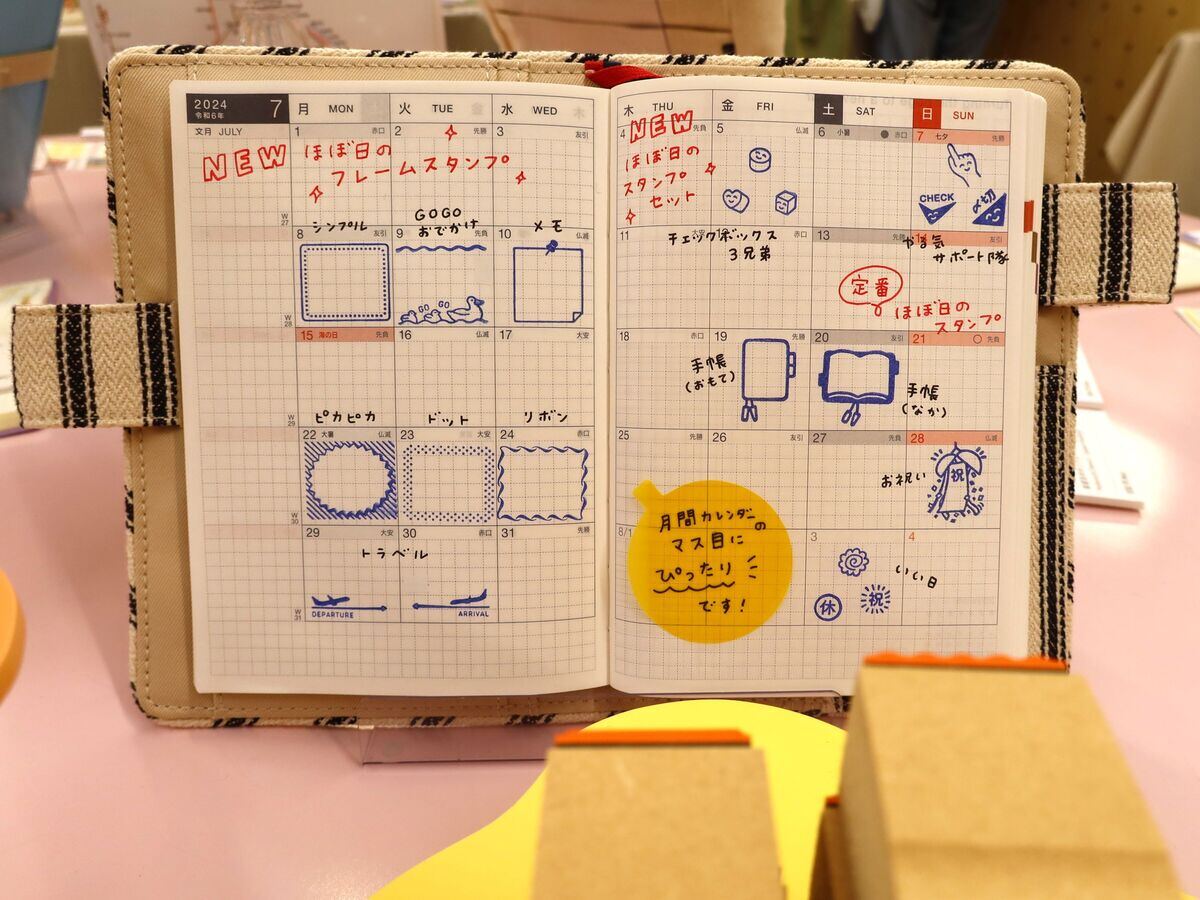 2024
令和6年
7
月 MON
火 TUE
水 WED
木
木 THU
金 FRI
土 SAT
日 SUN
文月 JULY
1 赤口
2 先勝
3 友引
4 先負
5 仏滅
6 小暑 赤口
7 七夕 先勝
NEW ほぼ日の
フレームスタンプ
NEW
ほぼ日の
スタンプ
セット
CHECK
〆切
W
27
シンプル
GOGO
おでかけ
メモ
チェックボックス
3兄弟
やる気
サポート隊
8 友引
9
10 仏滅
11
赤口
13 先勝
GO GO
定番
ほぼ日の
スタンプ
W
28
15 海の日 先負
16 仏滅
17 大安
18 赤口
19 先勝
20 友引
21 先負
手帳
(おもて)
手帳
(なか)
W
29
ピカピカ
ドット
リボン
22 大暑 仏滅
23 大安
24 赤口
25 先勝
26 友引
27 先負
28 仏滅
お祝い
祝
W
30
29 大安
30 赤口
31 先勝
8/1
3
4
トラベル
DEPARTURE
ARRIVAL
月間カレンダーの
マス目に
ぴったり
です!
いい日
休
祝
W
31